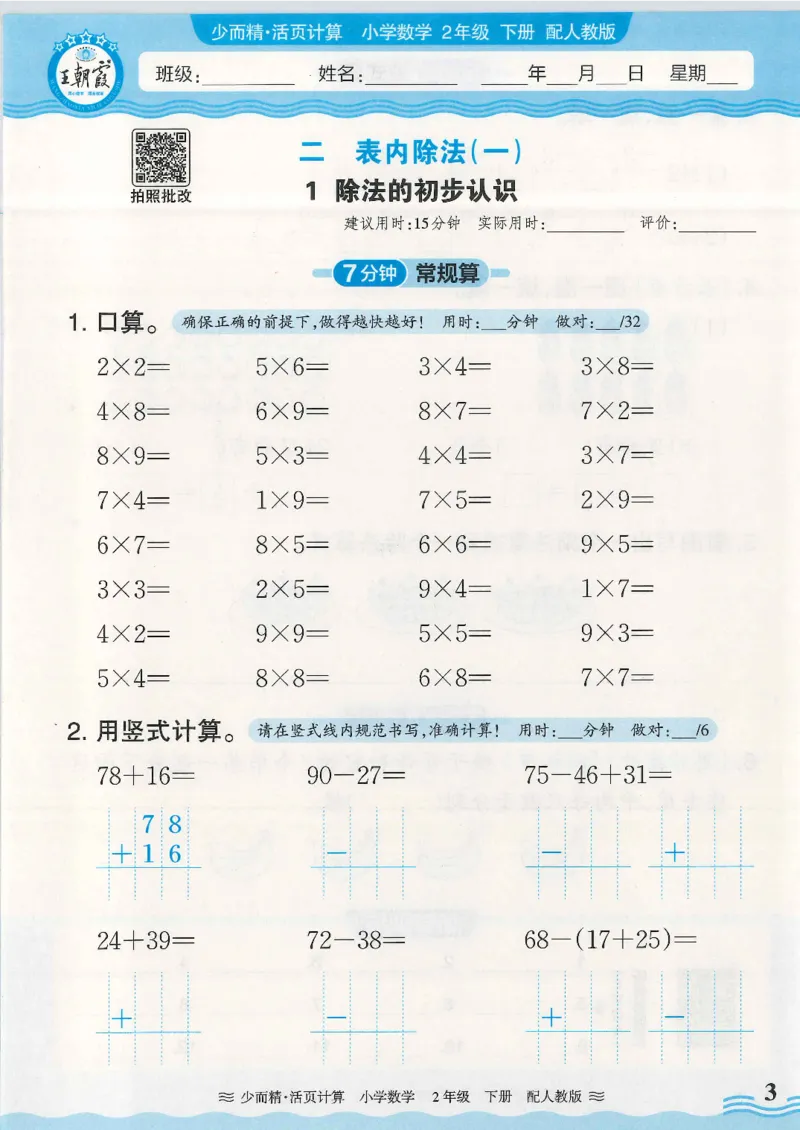 少而精·活页计算 小学数学 2年级 下册 配人教版
王朝霞
班级:________ 姓名:________ ____年___月___日 星期___
拍照批改
二 表内除法(一)
1 除法的初步认识
建议用时:15分钟 实际用时:________ 评价:________
7分钟 常规算
1. 口算。 确保正确的前提下,做得越快越好! 用时:___分钟 做对:___/32
2×2= 5×6= 3×4= 3×8=
4×8= 6×9= 8×7= 7×2=
8×9= 5×3= 4×4= 3×7=
7×4= 1×9= 7×5= 2×9=
6×7= 8×5= 6×6= 9×5=
3×3= 2×5= 9×4= 1×7=
4×2= 9×9= 5×5= 9×3=
5×4= 8×8= 6×8= 7×7=
2. 用竖式计算。 请在竖式线内规范书写,准确计算! 用时:___分钟 做对:___/6
78+16= 90-27= 75-46+31=
7 8
+ 1 6 - - +
24+39= 72-38= 68-(17+25)=
+ - + -
少而精·活页计算 小学数学 2年级 下册 配人教版
3